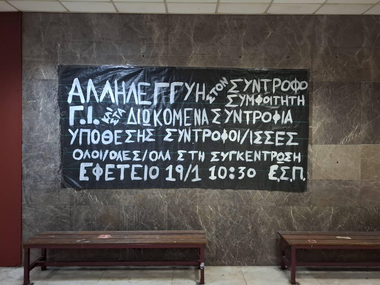 ΑΛΛΗΛΕΓΓΥΗ ΣΤΟΝ ΣΥΝΤΡΟΦΟ
ΣΥΜΦΟΙΤΗΤΗ
Γ.Ι. ΚΑΙ ΣΤΑ ΔΙΩΚΟΜΕΝΑ ΣΥΝΤΡΟΦΙΑ
ΥΠΟΘΕΣΗΣ ΣΥΝΤΡΟΦΟΙ/ΙΣΣΕΣ
ΟΛΟΙ/ΟΛΕΣ/ΟΛΑ ΣΤΗ ΣΥΓΚΕΝΤΡΩΣΗ
ΕΦΕΤΕΙΟ 19/1 10:30 Ε.Σ.Π.